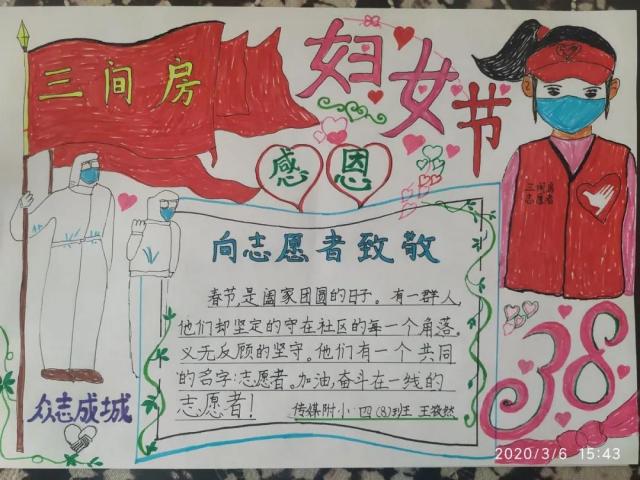 三间房
妇女节
感恩
三间房
志愿者
向志愿者致敬
春节,是阖家团圆的日子。有一群人,
他们却坚定的守在社区的每一个角落,
义无反顾的坚守。他们有一个共同
的名字:志愿者。加油,奋斗在一线的
志愿者!
传媒附小·四(8)班 王筱然
众志成城
38
2020/3/6 15:43